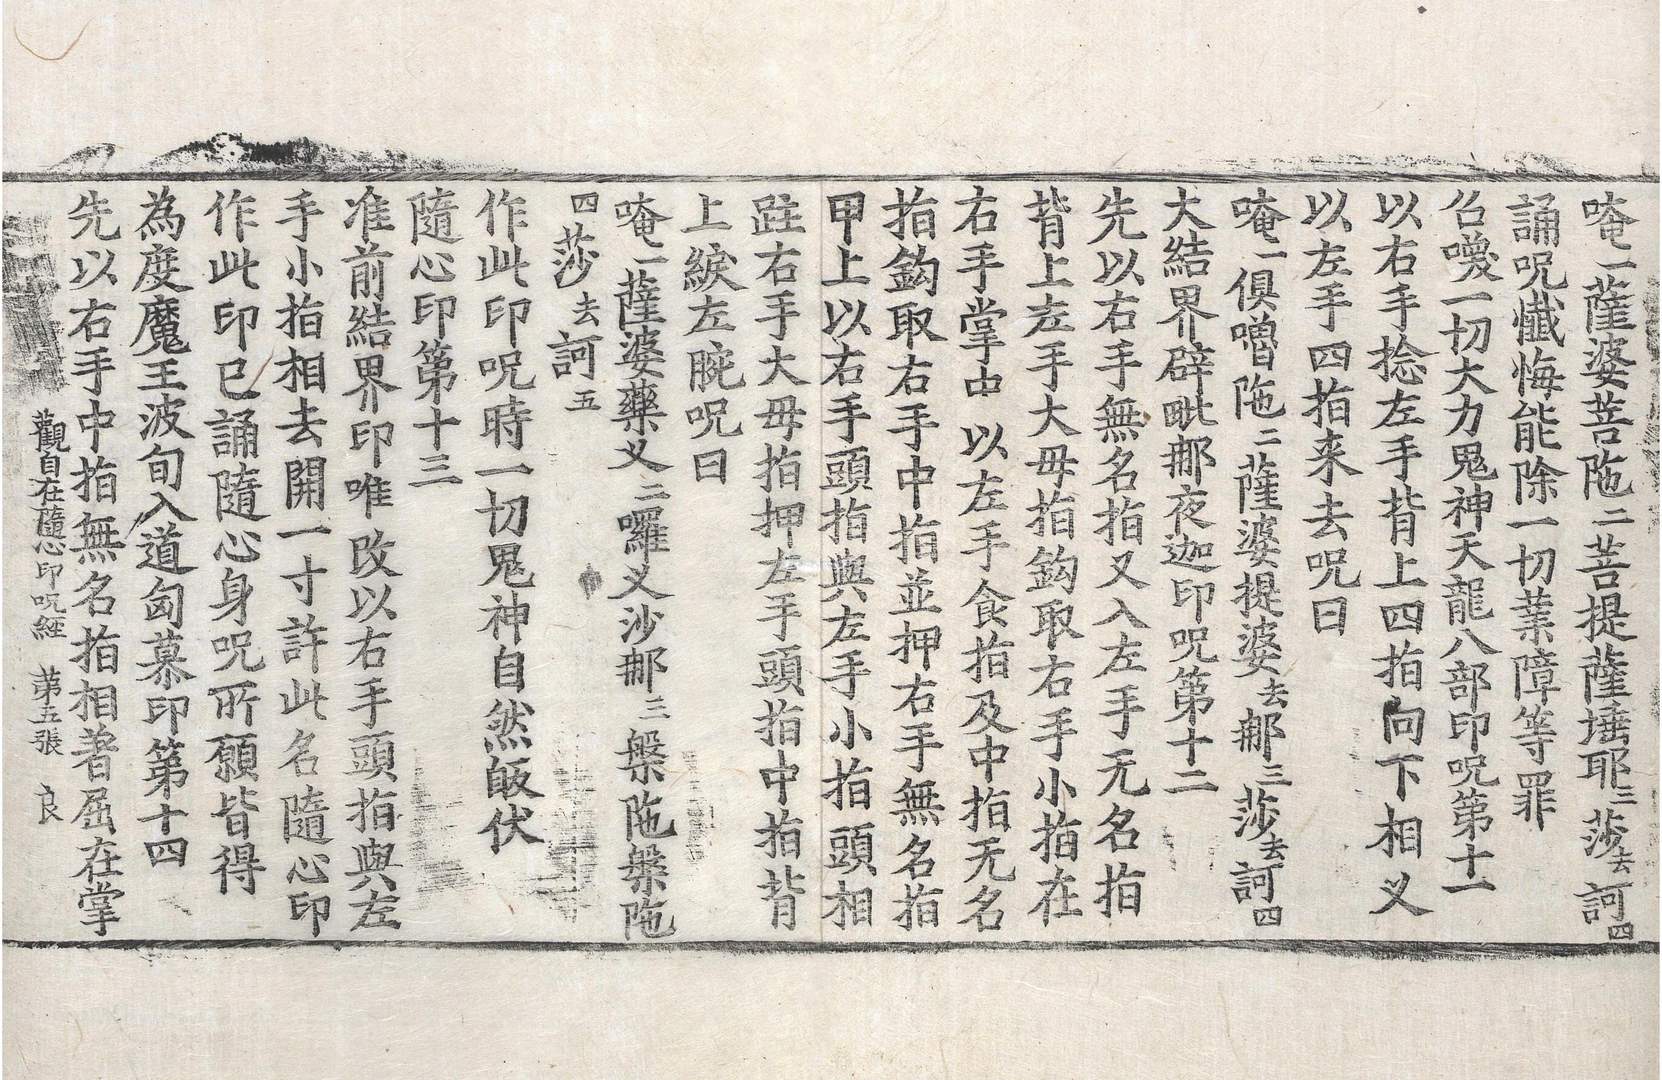 唵一薩婆菩陁二菩提薩埵耶三莎去訶四
誦呪懺悔能除一切業障等罪
召喚一切大力鬼神天龍八部印呪第十一
以右手捻左手背上四指向下相叉
以左手四指来去呪曰
唵一俱嚕陁二薩婆提婆去那三莎去訶四
大結界辟毗那夜迦印呪第十二
先以右手無名指叉入左手无名指
背上左手大母指鈎取右手小指在
右手掌中以左手食指及中指无名
指鈎取右手中指並押右手無名指
甲上以右手頭指與左手小指頭相
跓右手大母指押左手頭指中指背
上綟左腕呪曰
唵一薩婆藥叉二囉叉沙那三槃陁槃陁
四莎去訶五
作此印呪時一切鬼神自然皈伏
隨心印第十三
准前結界印唯改以右手頭指與左
手小指相去開一寸許此名隨心印
作此印已誦隨心身呪所願皆得
為度魔王波旬入道匈慕印第十四
先以右手中指無名指相著屈在掌
觀自在隨心印呪經　第五張　良